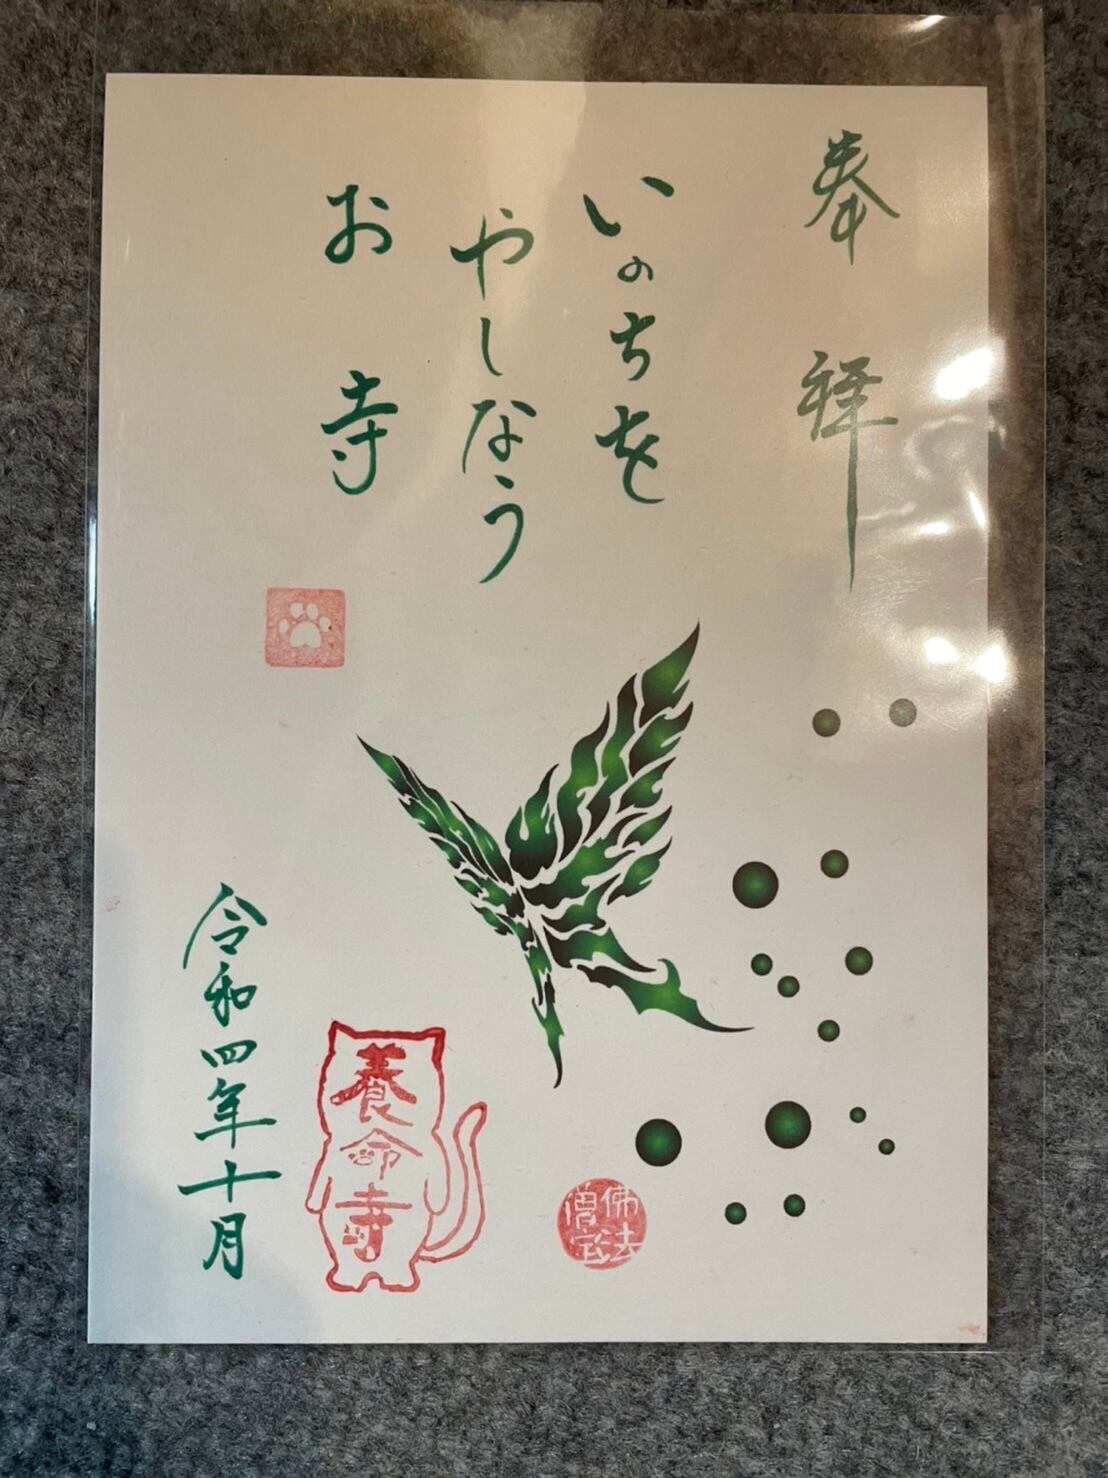 奉拝
いのちを
やしなう
お寺
令和四年十月
養命寺
佛法
僧宝